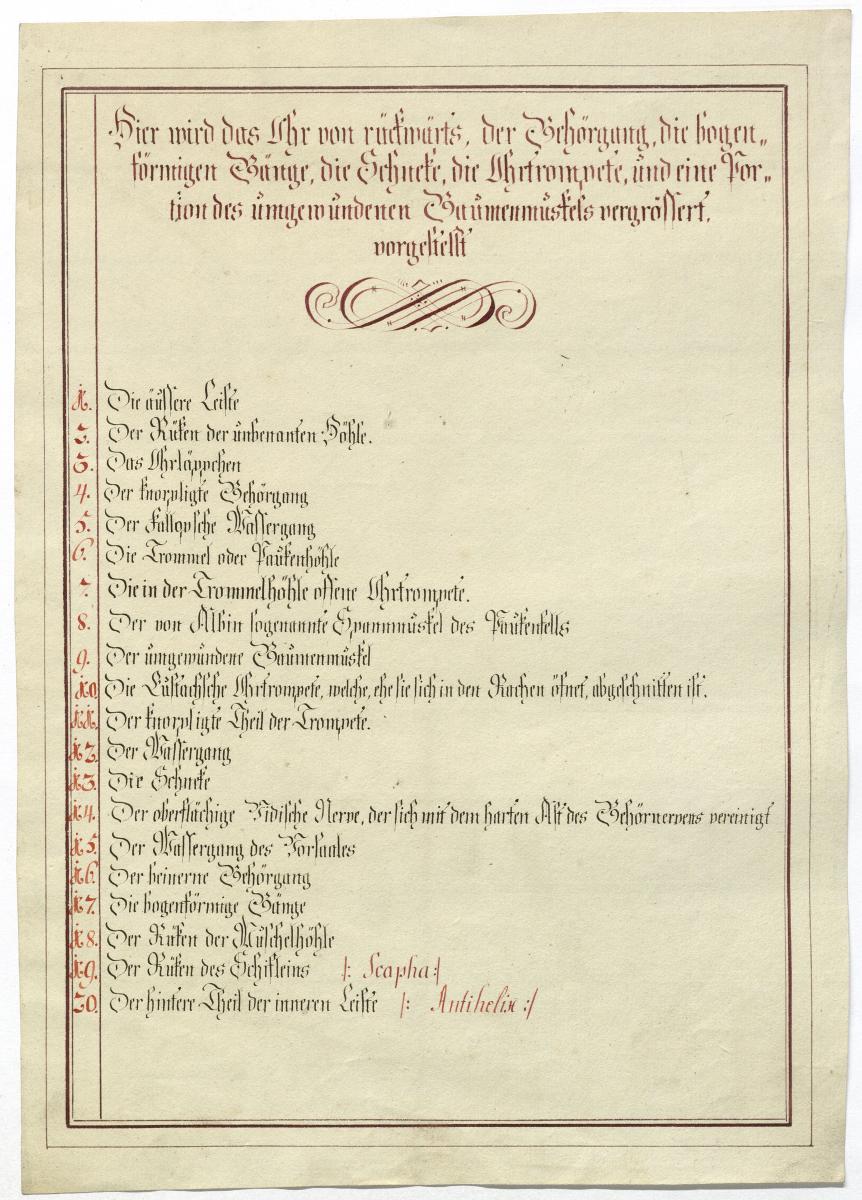 Hier wird das Ohr von rückwärts, der Gehörgang, die bogen„
förmigen Gänge, die Schneke, die Ohrtrompete, und eine Por„
tion des umgewundenen Gaumenmuskels vergrössert,
vorgestellt
1. Die äussere Leiste
2. Der Rüken der unbenanten Höhle.
3. Das Ohrläppchen
4. Der knorpligte Gehörgang
5. Der Fallopsche Wassergang
6. Die Trommel oder Paukenhöhle
7. Die in der Trommelhöhle offene Ohrtrompete.
8. Der von Albin sogenannte Spannmuskel des Paukenfells
9. Der umgewundene Gaumenmuskel
10. Die Eustachsche Ohrtrompete, welche, ehe sie sich in den Rachen öfnet, abgeschnitten ist.
11. Der knorpligte Theil der Trompete.
12. Der Wassergang
13. Die Schneke
14. Der oberflächige Vidische Nerve, der sich mit dem harten Ast des Gehörnervens vereinigt
15. Der Wassergang des Vorsaales
16. Der beinerne Gehörgang
17. Die bogenförmige Gänge
18. Der Rüken der Muschelhöhle
19. Der Rüken des Schifleins /: Scapha :/
20. Der hintere Theil der inneren Leiste /: Antihelix :/